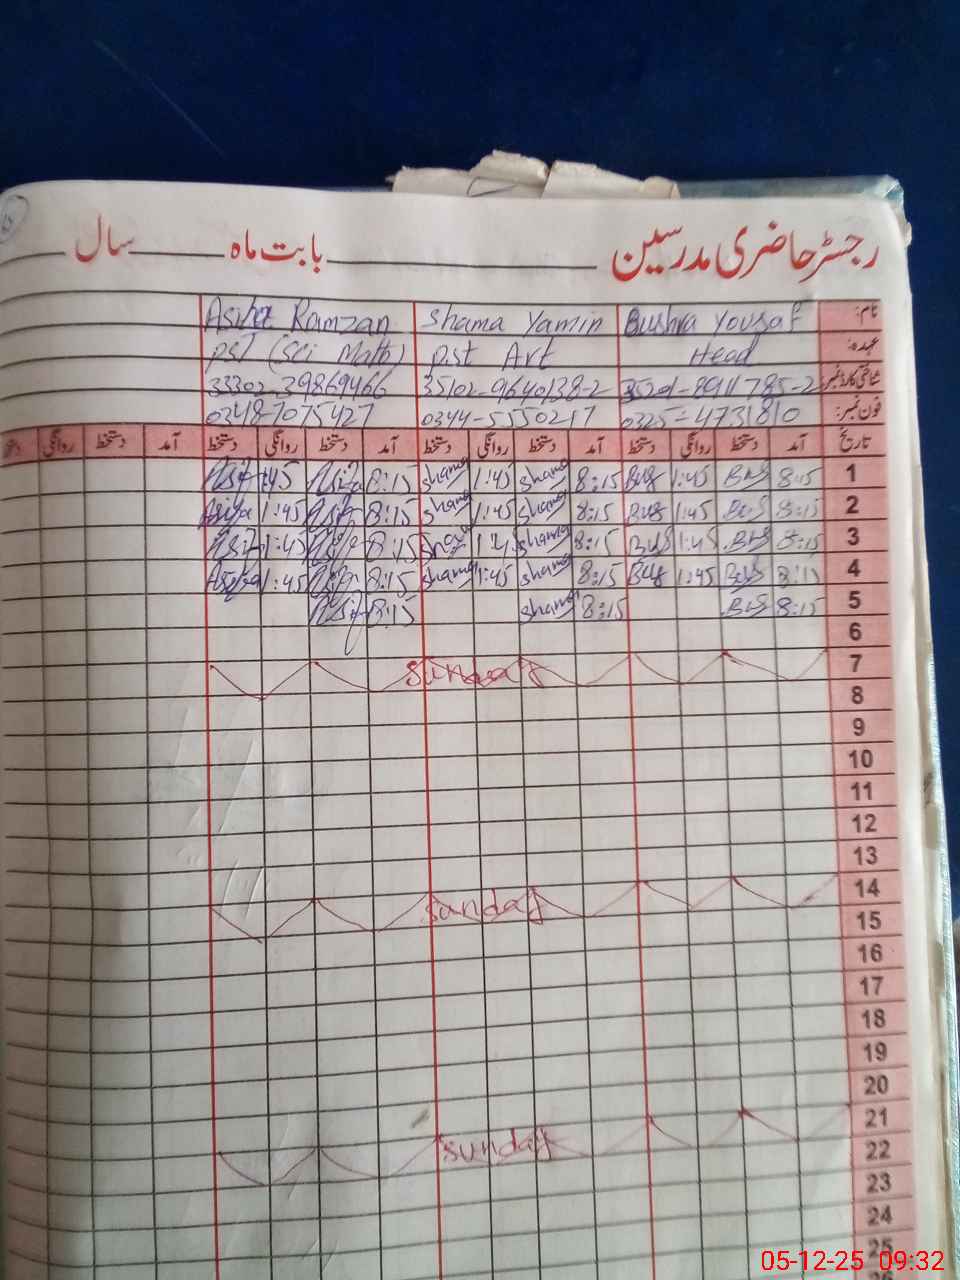 رجسٹر حاضری مدرسین ــــــ بابت ماہ ــــــ سال ــــــ
نام: Bushra Yousaf Shama Yamin Asifa Ramzan
عہدہ: Head Pst Art PST (Sci Math)
شناختی کارڈ نمبر: 35201-8911785-2 35102-9640138-2 33302-39869466
فون نمبر: 0325-4731810 0344-5550217 0348-7075427
تاریخ آمد دستخط روانگی دستخط آمد دستخط روانگی دستخط آمد دستخط روانگی دستخط آمد دستخط روانگی دستخط
1 8:15 Bus 1:45 Bus 8:15 Shama 1:45 Shama 8:15 Asifa 1:45 Asifa
2 8:15 Bus 1:45 Bus 8:15 Shama 1:45 Shama 8:15 Asifa 1:45 Asifa
3 8:15 Bus 1:45 Bus 8:15 Shama 1:4 Shama 8:15 Asifa 1:45 Asifa
4 8:15 Bus 1:45 Bus 8:15 Shama 1:45 Shama 8:15 Asifa 1:45 Asifa
5 8:15 Bus 8:15 Shama 8:15 Asifa
6
7 Sunday
8
9
10
11
12
13
14 Sunday
15
16
17
18
19
20
21
22 Sunday
23
24
25
05-12-25 09:32